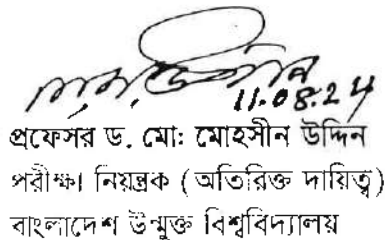 11.08.24
প্রফেসর ড. মো: মোহসীন উদ্দিন
পরীক্ষা নিয়ন্ত্রক (অতিরিক্ত দায়িত্ব)
বাংলাদেশ উন্মুক্ত বিশ্ববিদ্যালয়